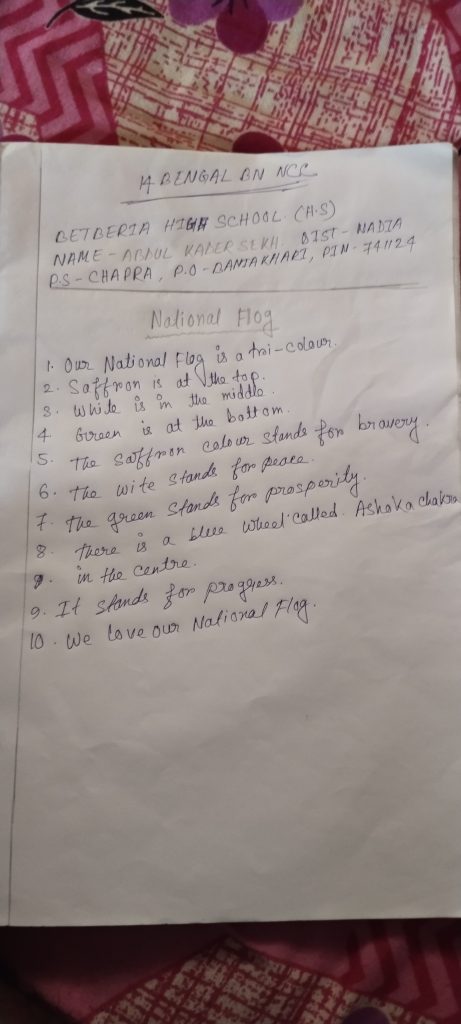 14 BENGAL BN NCC
BETBERIA HIGH SCHOOL (H.S)
NAME - ABDUL KADER SEKH. DIST - NADIA
P.S - CHAPRA, P.O - BANIAKHARI, PIN - 741124
National Flog
1. Our National Flag is a tri-colour.
2. Saffron is at the top.
3. While is in the middle.
4 Green is at the bottom.
5. The saffron colour stands for bravery.
6. The wite stands for peace.
7. The green stands for prosperity.
8. There is a blue wheel called Ashoka chakra
9. in the centre.
9. It stands for proggress.
10. We love our National Flag.